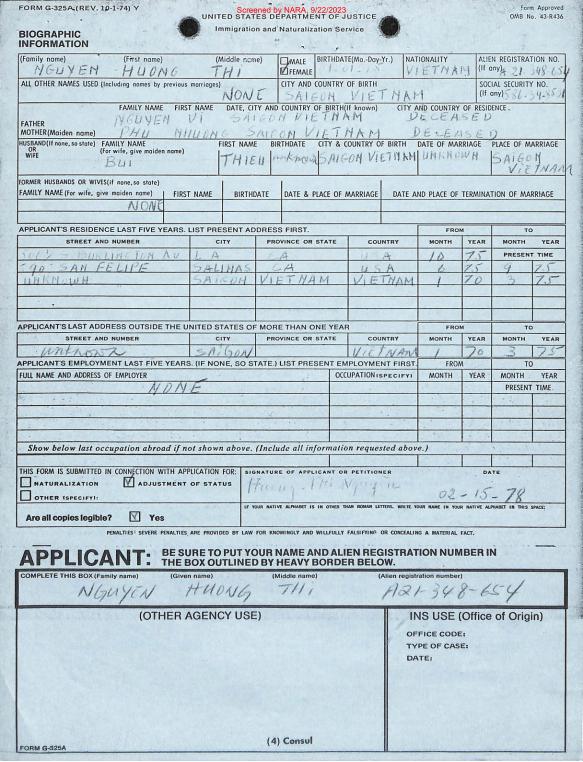 FORM G-325A (REV. 10-1-74) Y
Screened by NARA, 9/22/2023
UNITED STATES DEPARTMENT OF JUSTICE
Immigration and Naturalization Service
Form Approved
OMB No. 43-R436
BIOGRAPHIC
INFORMATION
(Family name) (First name) (Middle name) MALE FEMALE BIRTHDATE (Mo.-Day-Yr.) NATIONALITY ALIEN REGISTRATION NO.
NGUYEN HUONG THI VIETNAM (If any) A 21-348-654
ALL OTHER NAMES USED (Including names by previous marriages) CITY AND COUNTRY OF BIRTH SOCIAL SECURITY NO.
NONE SAIGON VIETNAM (If any)
FAMILY NAME FIRST NAME DATE, CITY AND COUNTRY OF BIRTH (If known) CITY AND COUNTRY OF RESIDENCE
FATHER NGUYEN VI SAIGON VIETNAM DECEASED
MOTHER (Maiden name) PHU NHUONG SAIGON VIETNAM DECEASED
HUSBAND (If none, so state) OR WIFE FAMILY NAME (For wife, give maiden name) FIRST NAME BIRTHDATE CITY & COUNTRY OF BIRTH DATE OF MARRIAGE PLACE OF MARRIAGE
BUI THIEU unknown SAIGON VIETNAM UNKNOWN SAIGON VIETNAM
FORMER HUSBANDS OR WIVES (if none, so state)
FAMILY NAME (For wife, give maiden name) FIRST NAME BIRTHDATE DATE & PLACE OF MARRIAGE DATE AND PLACE OF TERMINATION OF MARRIAGE
NONE
APPLICANT'S RESIDENCE LAST FIVE YEARS. LIST PRESENT ADDRESS FIRST. FROM TO
STREET AND NUMBER CITY PROVINCE OR STATE COUNTRY MONTH YEAR MONTH YEAR
S BURLINGTON AV LA CA 10 75 PRESENT TIME
SAN FELIPE SALINAS CA USA 6 75 9 75
UNKNOWN SAIGON VIETNAM VIETNAM 1 70 3 75
APPLICANT'S LAST ADDRESS OUTSIDE THE UNITED STATES OF MORE THAN ONE YEAR FROM TO
STREET AND NUMBER CITY PROVINCE OR STATE COUNTRY MONTH YEAR MONTH YEAR
unknown SAIGON VIETNAM 1 70 3 75
APPLICANT'S EMPLOYMENT LAST FIVE YEARS. (IF NONE, SO STATE.) LIST PRESENT EMPLOYMENT FIRST. FROM TO
FULL NAME AND ADDRESS OF EMPLOYER OCCUPATION (SPECIFY) MONTH YEAR MONTH YEAR
NONE PRESENT TIME
Show below last occupation abroad if not shown above. (Include all information requested above.)
THIS FORM IS SUBMITTED IN CONNECTION WITH APPLICATION FOR: SIGNATURE OF APPLICANT OR PETITIONER DATE
NATURALIZATION ADJUSTMENT OF STATUS Huong-Thi Nguyen 02-15-78
OTHER (SPECIFY):
IF YOUR NATIVE ALPHABET IS IN OTHER THAN ROMAN LETTERS, WRITE YOUR NAME IN YOUR NATIVE ALPHABET IN THIS SPACE:
Are all copies legible? Yes
PENALTIES: SEVERE PENALTIES ARE PROVIDED BY LAW FOR KNOWINGLY AND WILLFULLY FALSIFYING OR CONCEALING A MATERIAL FACT.
APPLICANT: BE SURE TO PUT YOUR NAME AND ALIEN REGISTRATION NUMBER IN
THE BOX OUTLINED BY HEAVY BORDER BELOW.
COMPLETE THIS BOX (Family name) (Given name) (Middle name) (Alien registration number)
NGUYEN HUONG THI A21-348-654
(OTHER AGENCY USE) INS USE (Office of Origin)
OFFICE CODE:
TYPE OF CASE:
DATE:
(4) Consul
FORM G-325A